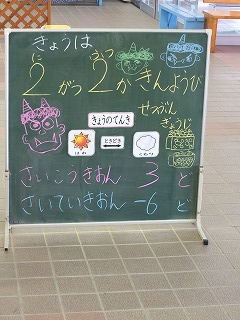 きょうは
2がつ2かきんようび
に ふつ
せつぶん
ぎょうじ
きょうのてんき
はれ ときどき くもり
さいこうきおん 3 ど
さいていきおん -6 ど